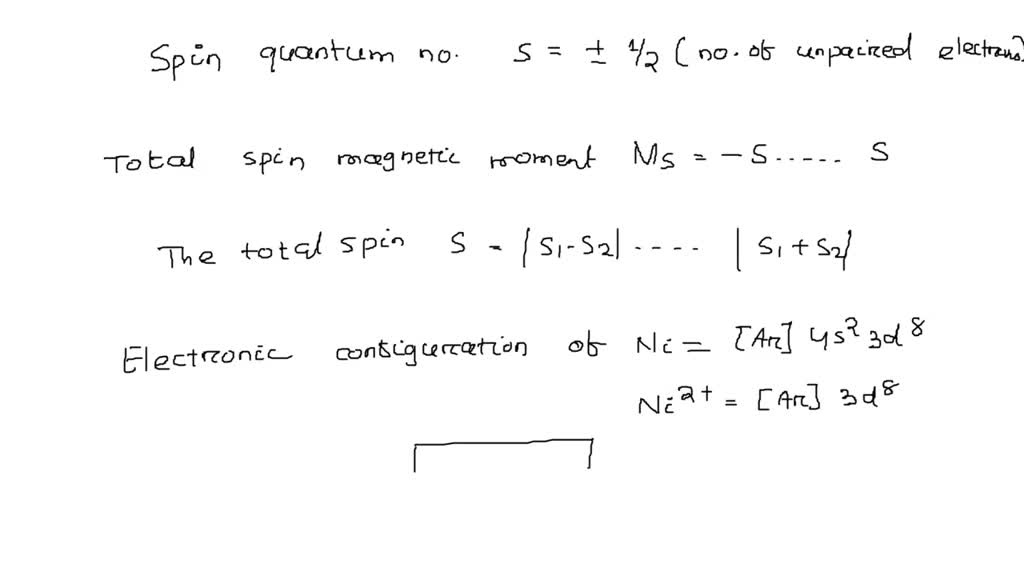 Spin quantum no. S = ± 1/2 ( no. of unpaired electrons)
Total spin magnetic moment Ms = -S ..... S
The total spin S = |S1-S2| .... |S1+S2|
Electronic configuration of Ni = [Ar] 4s² 3d⁸
Ni²⁺ = [Ar] 3d⁸